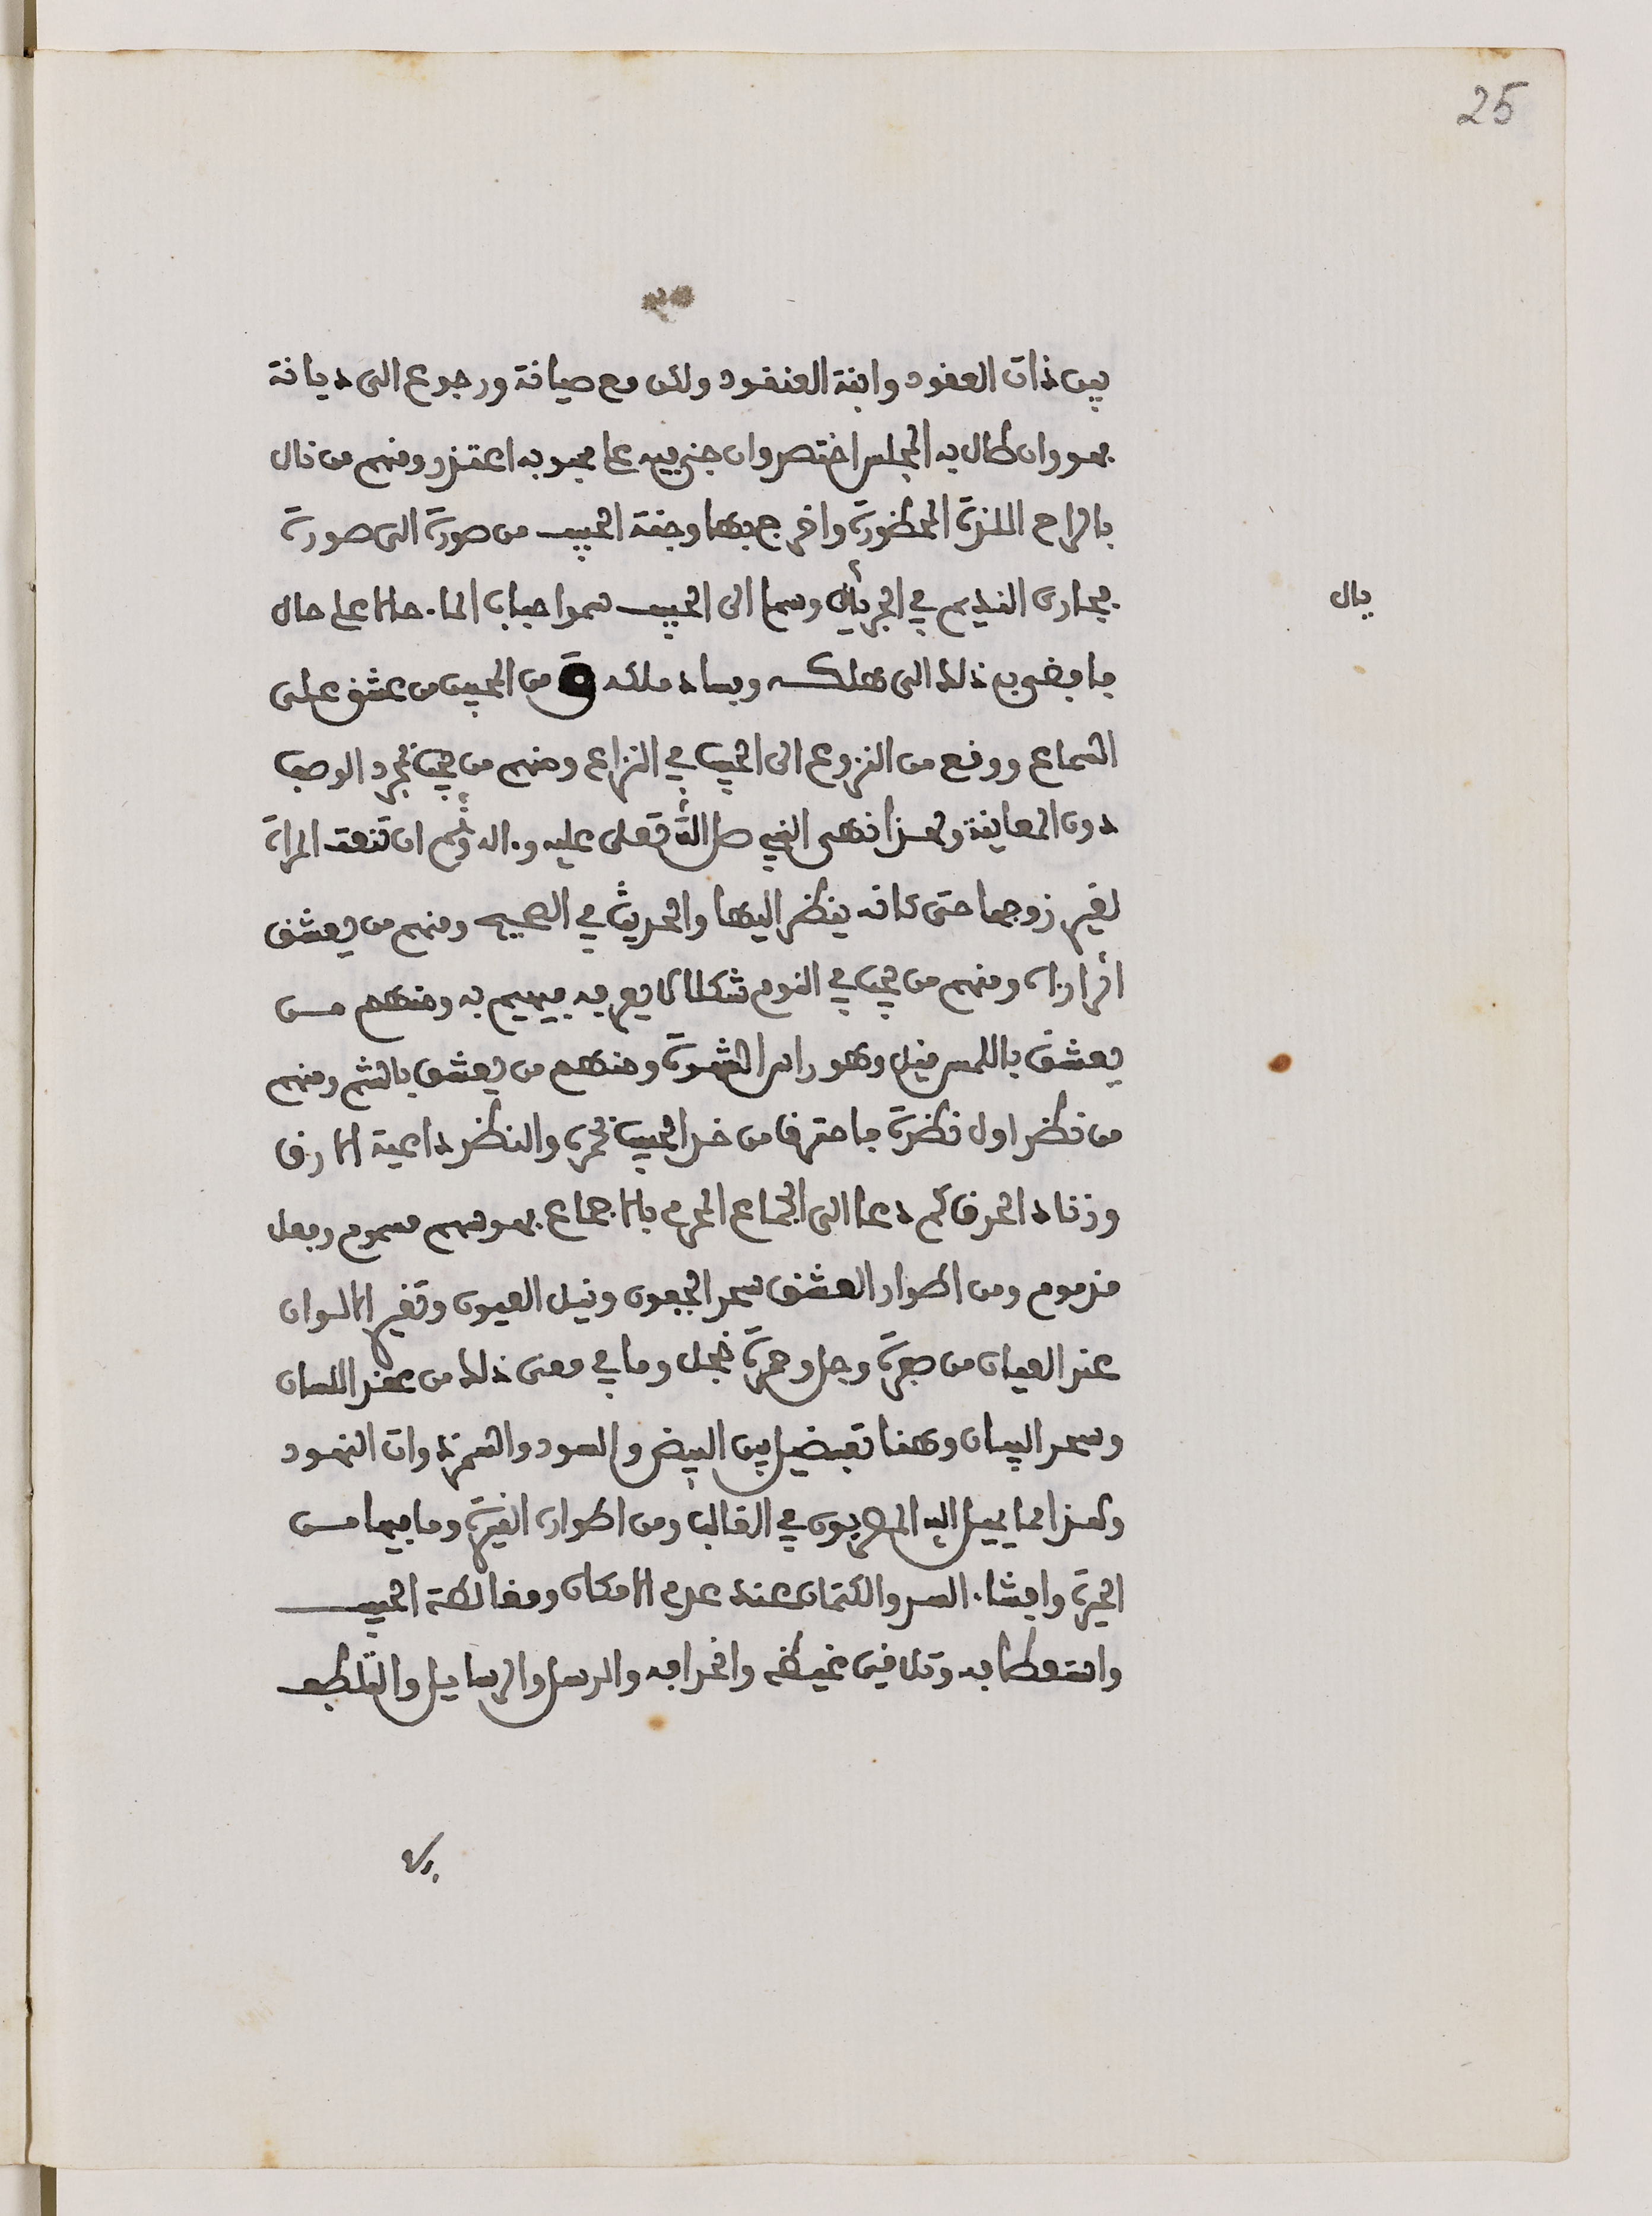 25
بين ذات العقود وابنة العنقود ولكن مع صيانة ورجوع الى ديانة
فهو وان طال به المجلس اختصر وان جنى فيه على محبوبه اعتذر ومنهم من نال
بالراح اللذة المحظورة واخرج بها وجنة الحبيب من صورة الى صورة
فجارى النديم في الجريال وسما الى الحبيب سموا حباب الماء حالا على حال
يال
فافضى به ذلك الى هلكه وفساد ملكه ومن المحبين من عشق على
السماع ووقع من النزوع الى الحبيب في النزاع ومنهم من يحب بمجرد الوصف
دون المعاينة ولهذا نهى النبي صلى الله تعلى عليه وءاله وسلم ان تنعت المراة
لغير زوجها حتى كانه ينظر اليها والحديث في الصحيح ومنهم من يعشق
اثرا رءاه ومنهم من يحب في النوم شكلا لا يعرفه فيهيم به ومنهم من
يعشق باللمس فيل وهو راس الشهوة ومنهم من يعشق بالشم ومنهم
من نظر اول نظرة فاحترق من خد الحبيب بجمرة والنظر داعية الارق
وزناد الحرق كم دعا الى الجماع المحرم بالاجماع فهو سهم مسموم وفعل
مذموم ومن اطوار العشق سحر الجفون ونبل العيون وتغير الالوان
عند العيان من صفرة وجل وحمرة خجل وما في معنى ذلك من عقد اللسان
وسحر البيان وهنا تفضيل بين البيض والسود والسمر ذوات النهود
وكذا لما يميل اليه المحبون في الغالب ومن اطواره الغيرة وما فيها من
الحيرة وافشاء السر والكتمان عند عدم الامكان ومغالطة الحبيب
واستعطافه وتلافى غيظه وانحرافه والرسل والرسايل والتلطف